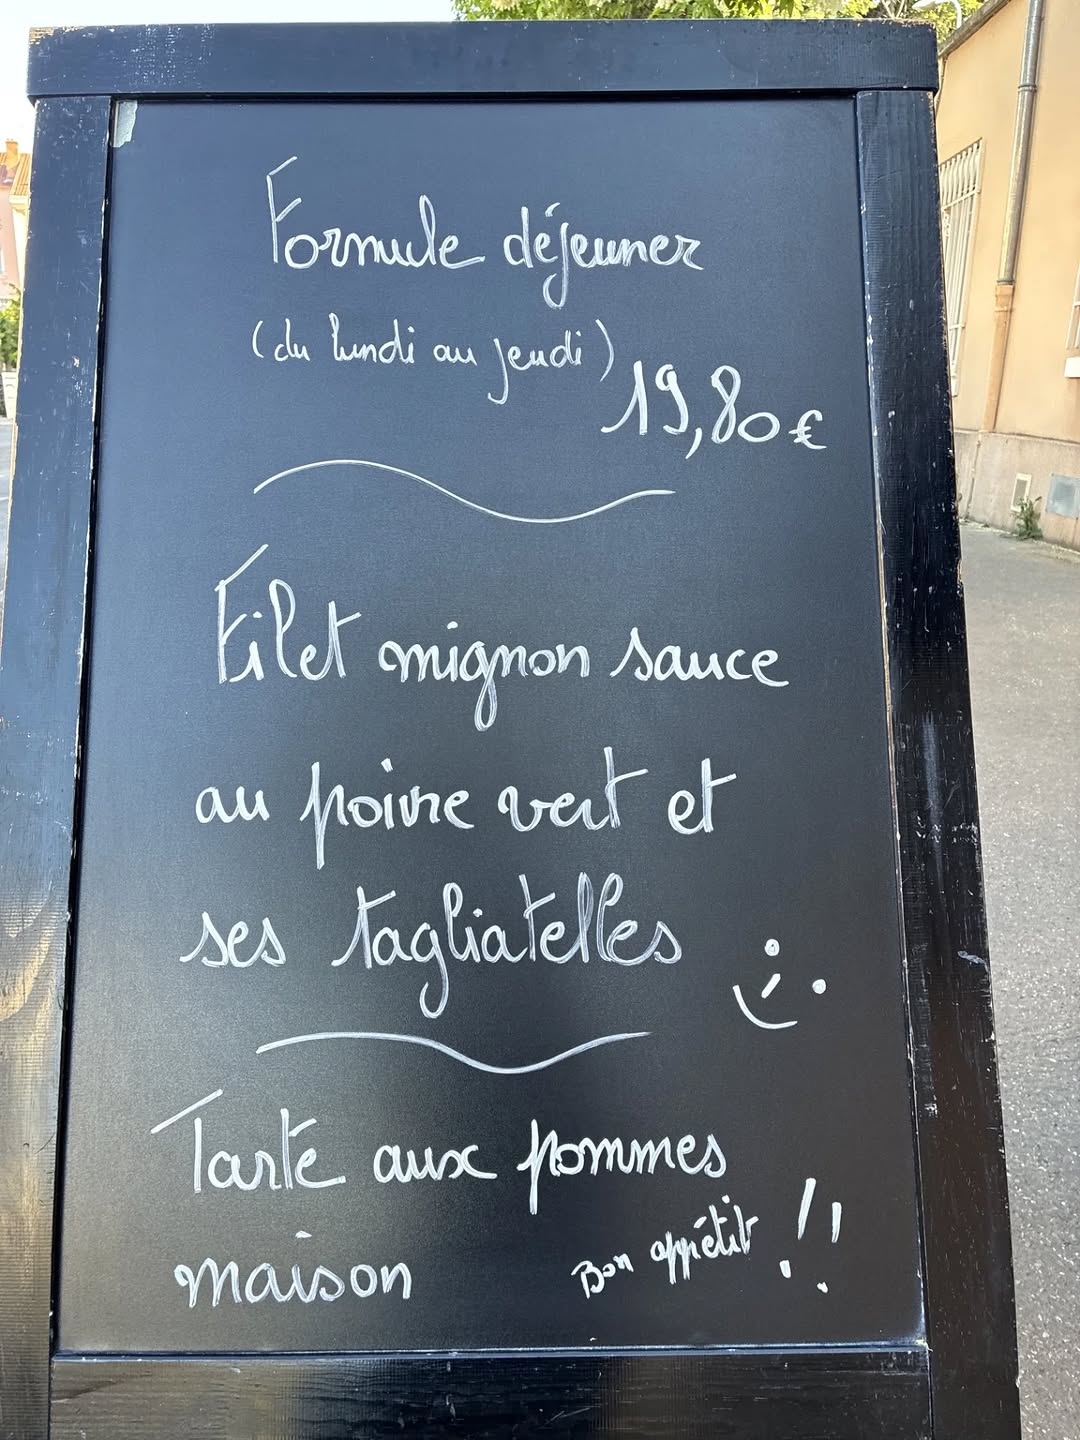 Formule déjeuner
(du lundi au jeudi)
19,80€
Filet mignon sauce
au poivre vert et
ses tagliatelles
Tarte aux pommes
maison
Bon appétit !!